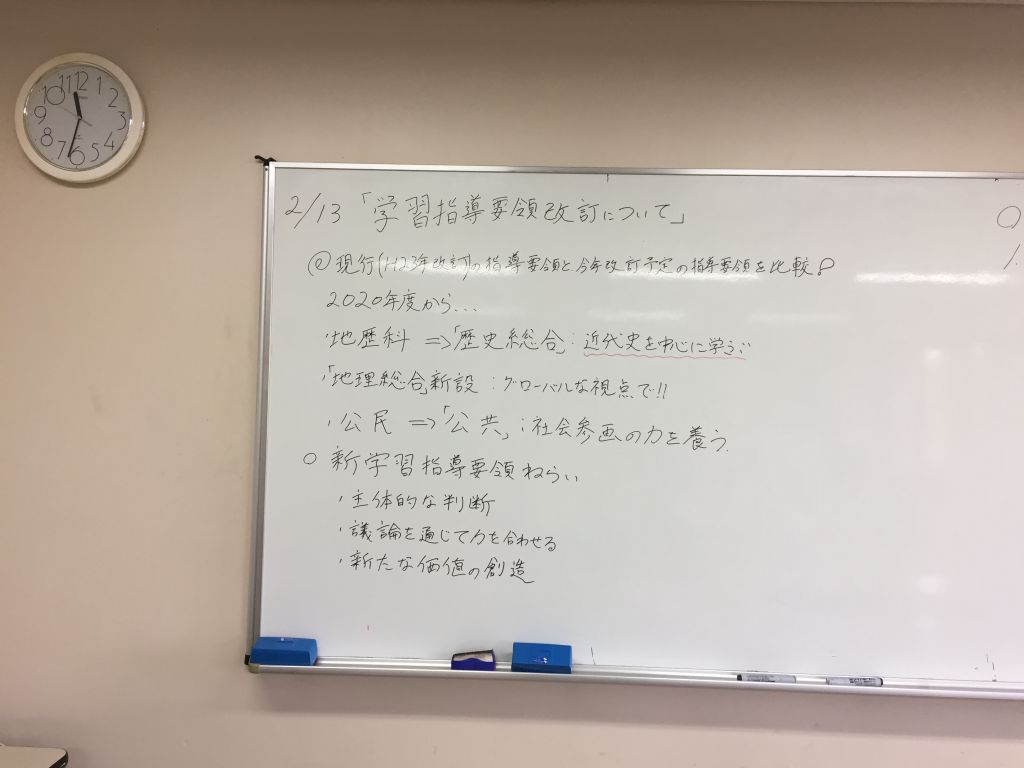 2/13「学習指導要領改訂について」
現行(H23年改訂)の指導要領と、今年改訂予定の指導要領を比較。
2020年度から...
・地歴科 ⇒「歴史総合」: 近代史を中心に学ぶ
・「地理総合」新設 : グローバルな視点で!!
・公民 ⇒「公共」: 社会参画の力を養う.
○ 新学習指導要領ねらい
・主体的な判断
・議論を通じて力を合わせる
・新たな価値の創造
12
1
2
3
4
5
6
7
8
9
10
11